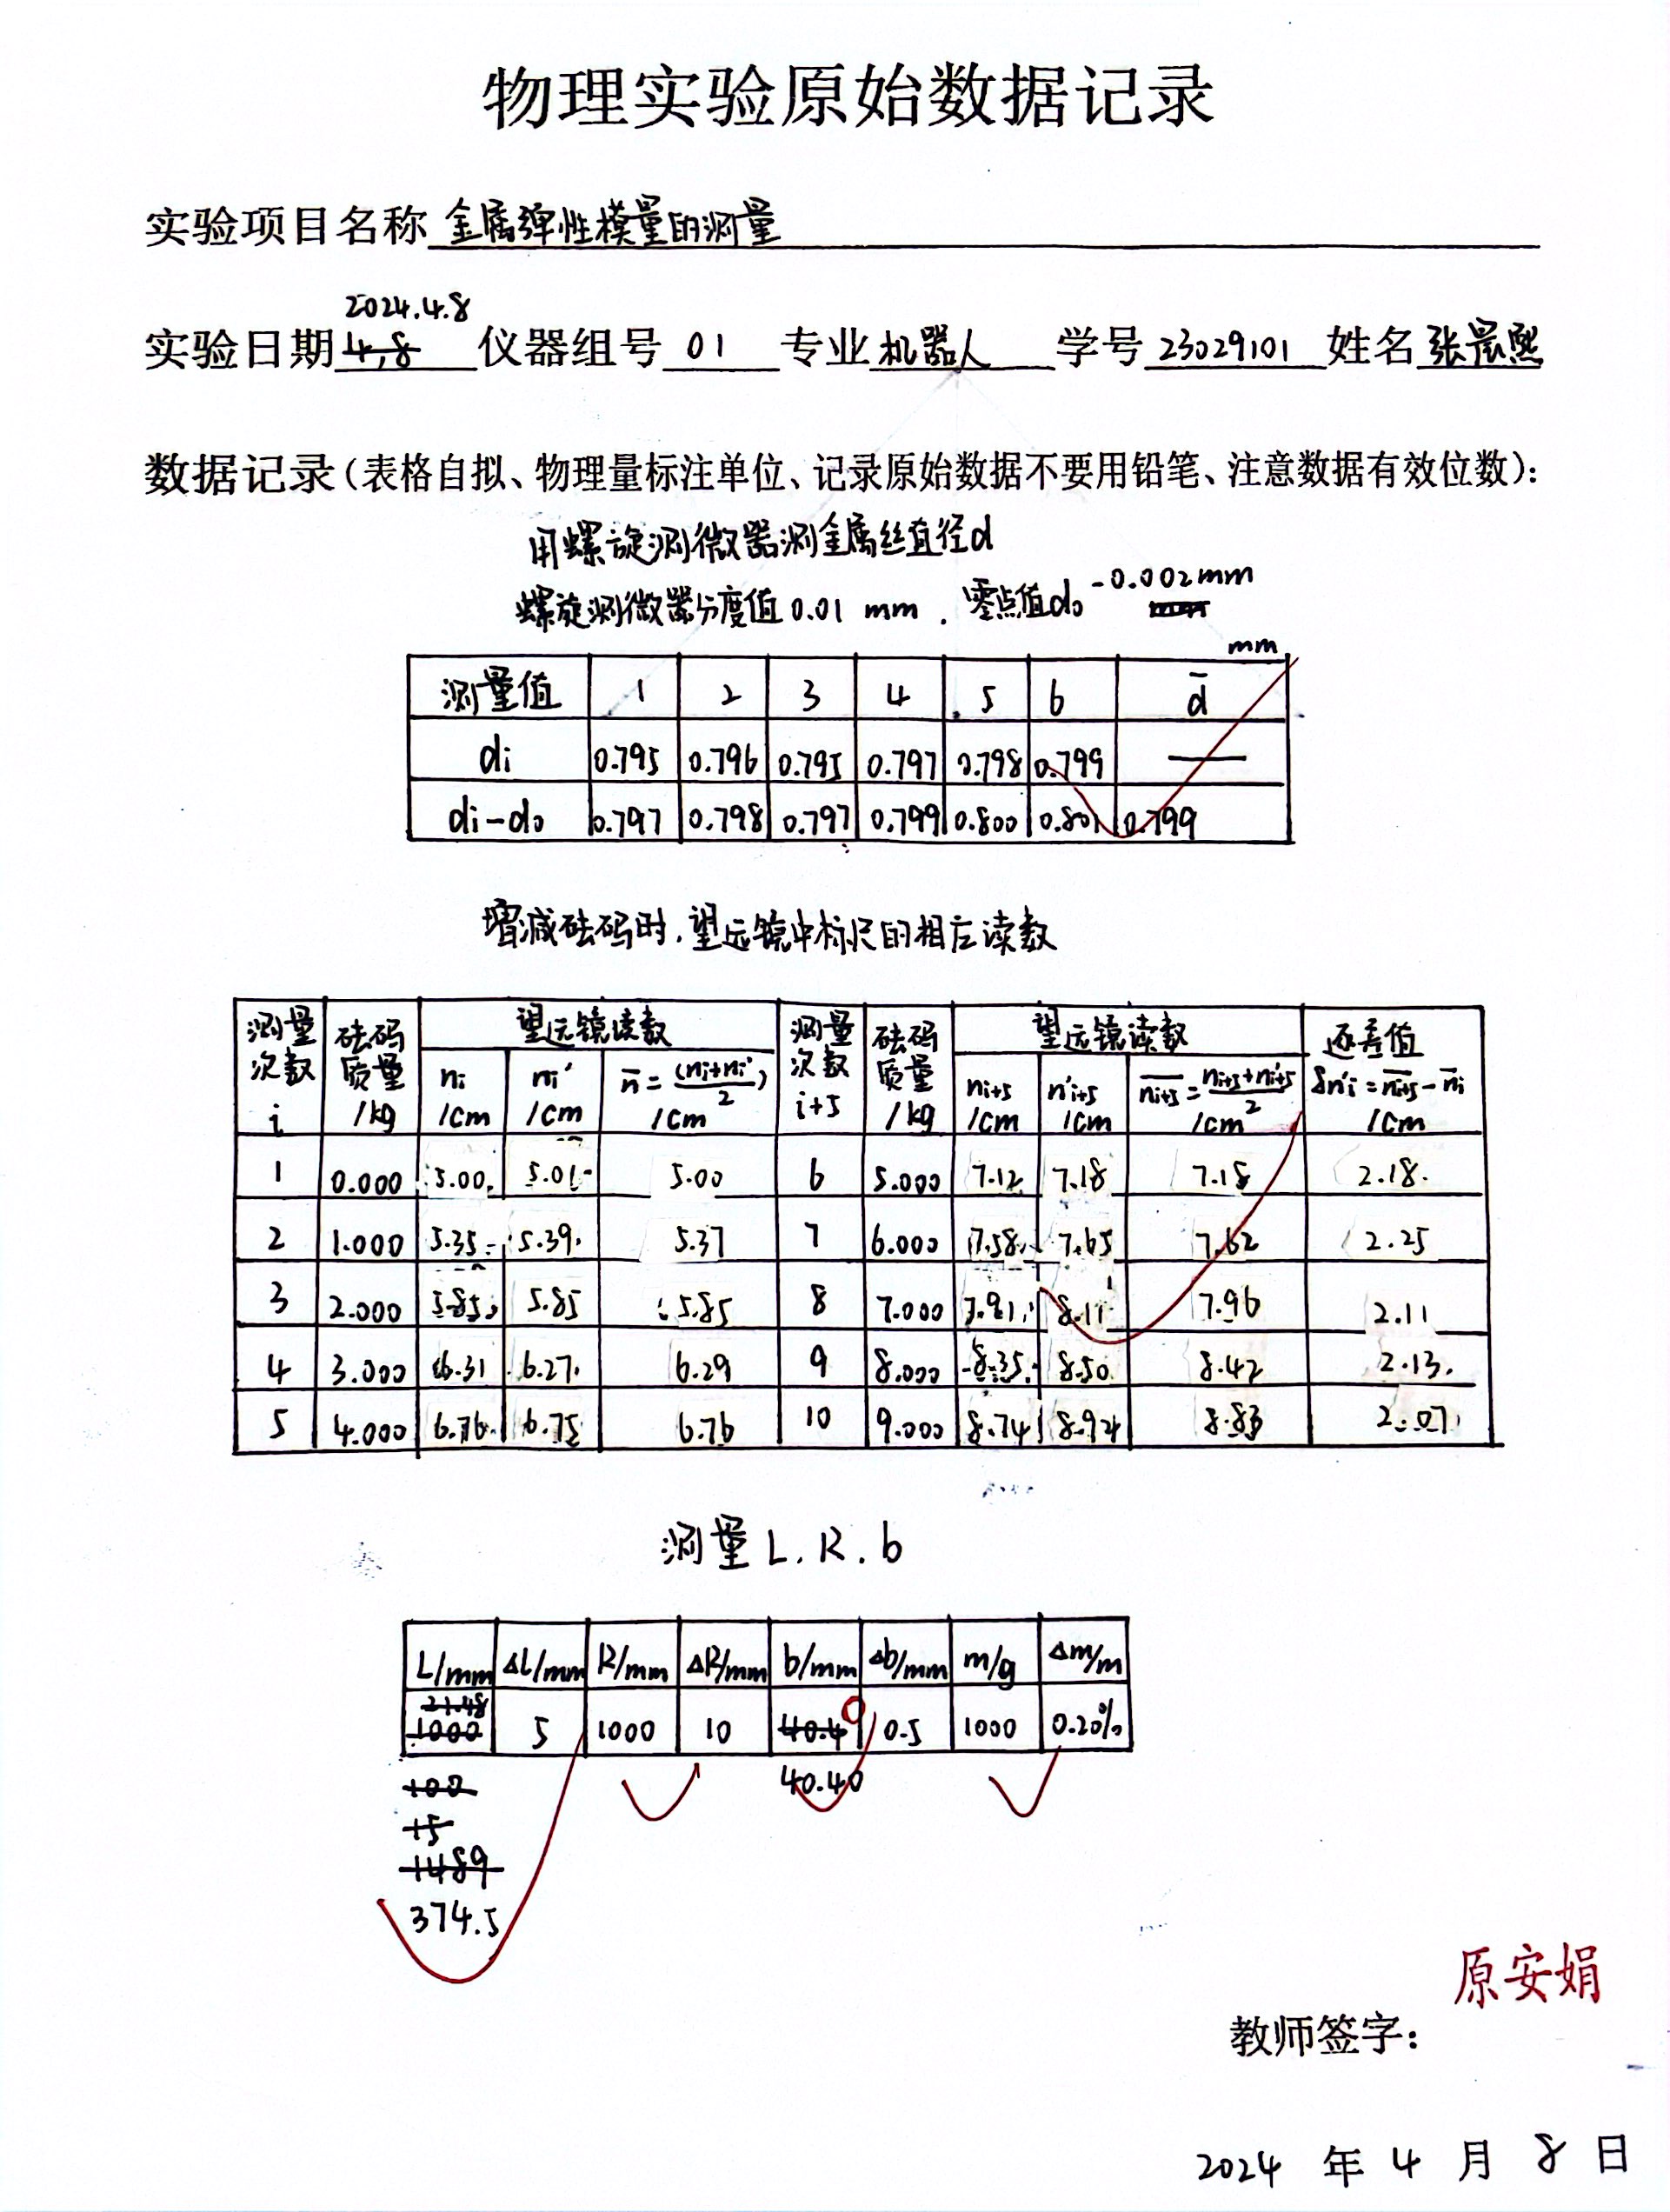 物理实验原始数据记录
实验项目名称 金属弹性模量的测量
2024.4.8
实验日期 4.8 仪器组号 01 专业 机器人 学号 23029101 姓名 张晨熙
数据记录(表格自拟、物理量标注单位、记录原始数据不要用铅笔、注意数据有效位数):
用螺旋测微器测金属丝直径d
螺旋测微器分度值0.01 mm. 零点值d₀ -0.002mm
mm
测量值 1 2 3 4 5 6 d̄
di 0.795 0.796 0.795 0.797 0.798 0.799 —
di-d₀ 0.797 0.798 0.797 0.799 0.800 0.801 0.799
增减砝码时,望远镜中标尺的相应读数
测量次数 i 砝码质量 /kg 望远镜读数 测量次数 i+5 砝码质量 /kg 望远镜读数 逐差值
ni /cm ni' /cm n̄=(ni+ni')/2 /cm ni+5 /cm n'i+5 /cm n̄i+5=(ni+5+n'i+5)/2 /cm δn'i=n̄i+5-n̄i /cm
1 0.000 5.00 5.01 5.00 6 5.000 7.12 7.18 7.18 2.18
2 1.000 5.35 5.39 5.37 7 6.000 7.58 7.65 7.62 2.25
3 2.000 5.85 5.85 5.85 8 7.000 7.81 8.11 7.96 2.11
4 3.000 6.31 6.27 6.29 9 8.000 8.35 8.50 8.42 2.13
5 4.000 6.76 6.75 6.76 10 9.000 8.74 8.92 8.83 2.07
测量L.R.b
L/mm ΔL/mm R/mm ΔR/mm b/mm Δb/mm m/g Δm/m
1000 5 1000 10 40.4 0.5 1000 0.20%
100 40.40
15
1489
374.5
原安娟
教师签字:
2024 年 4 月 8 日